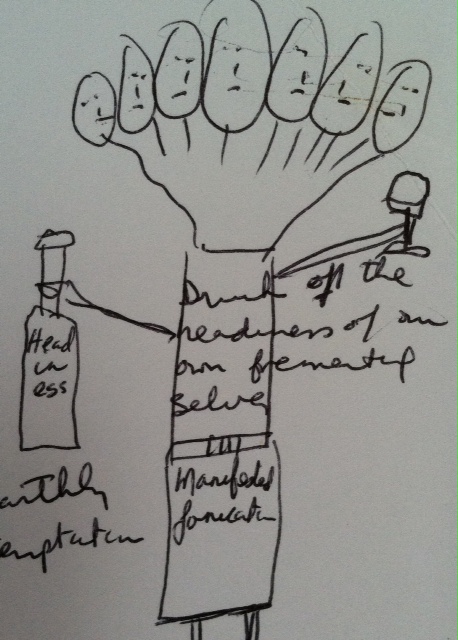 Drunk off the
headiness of our
own fremented
selves
Head
in
ess
arthly
emptation
Manifested
fornication